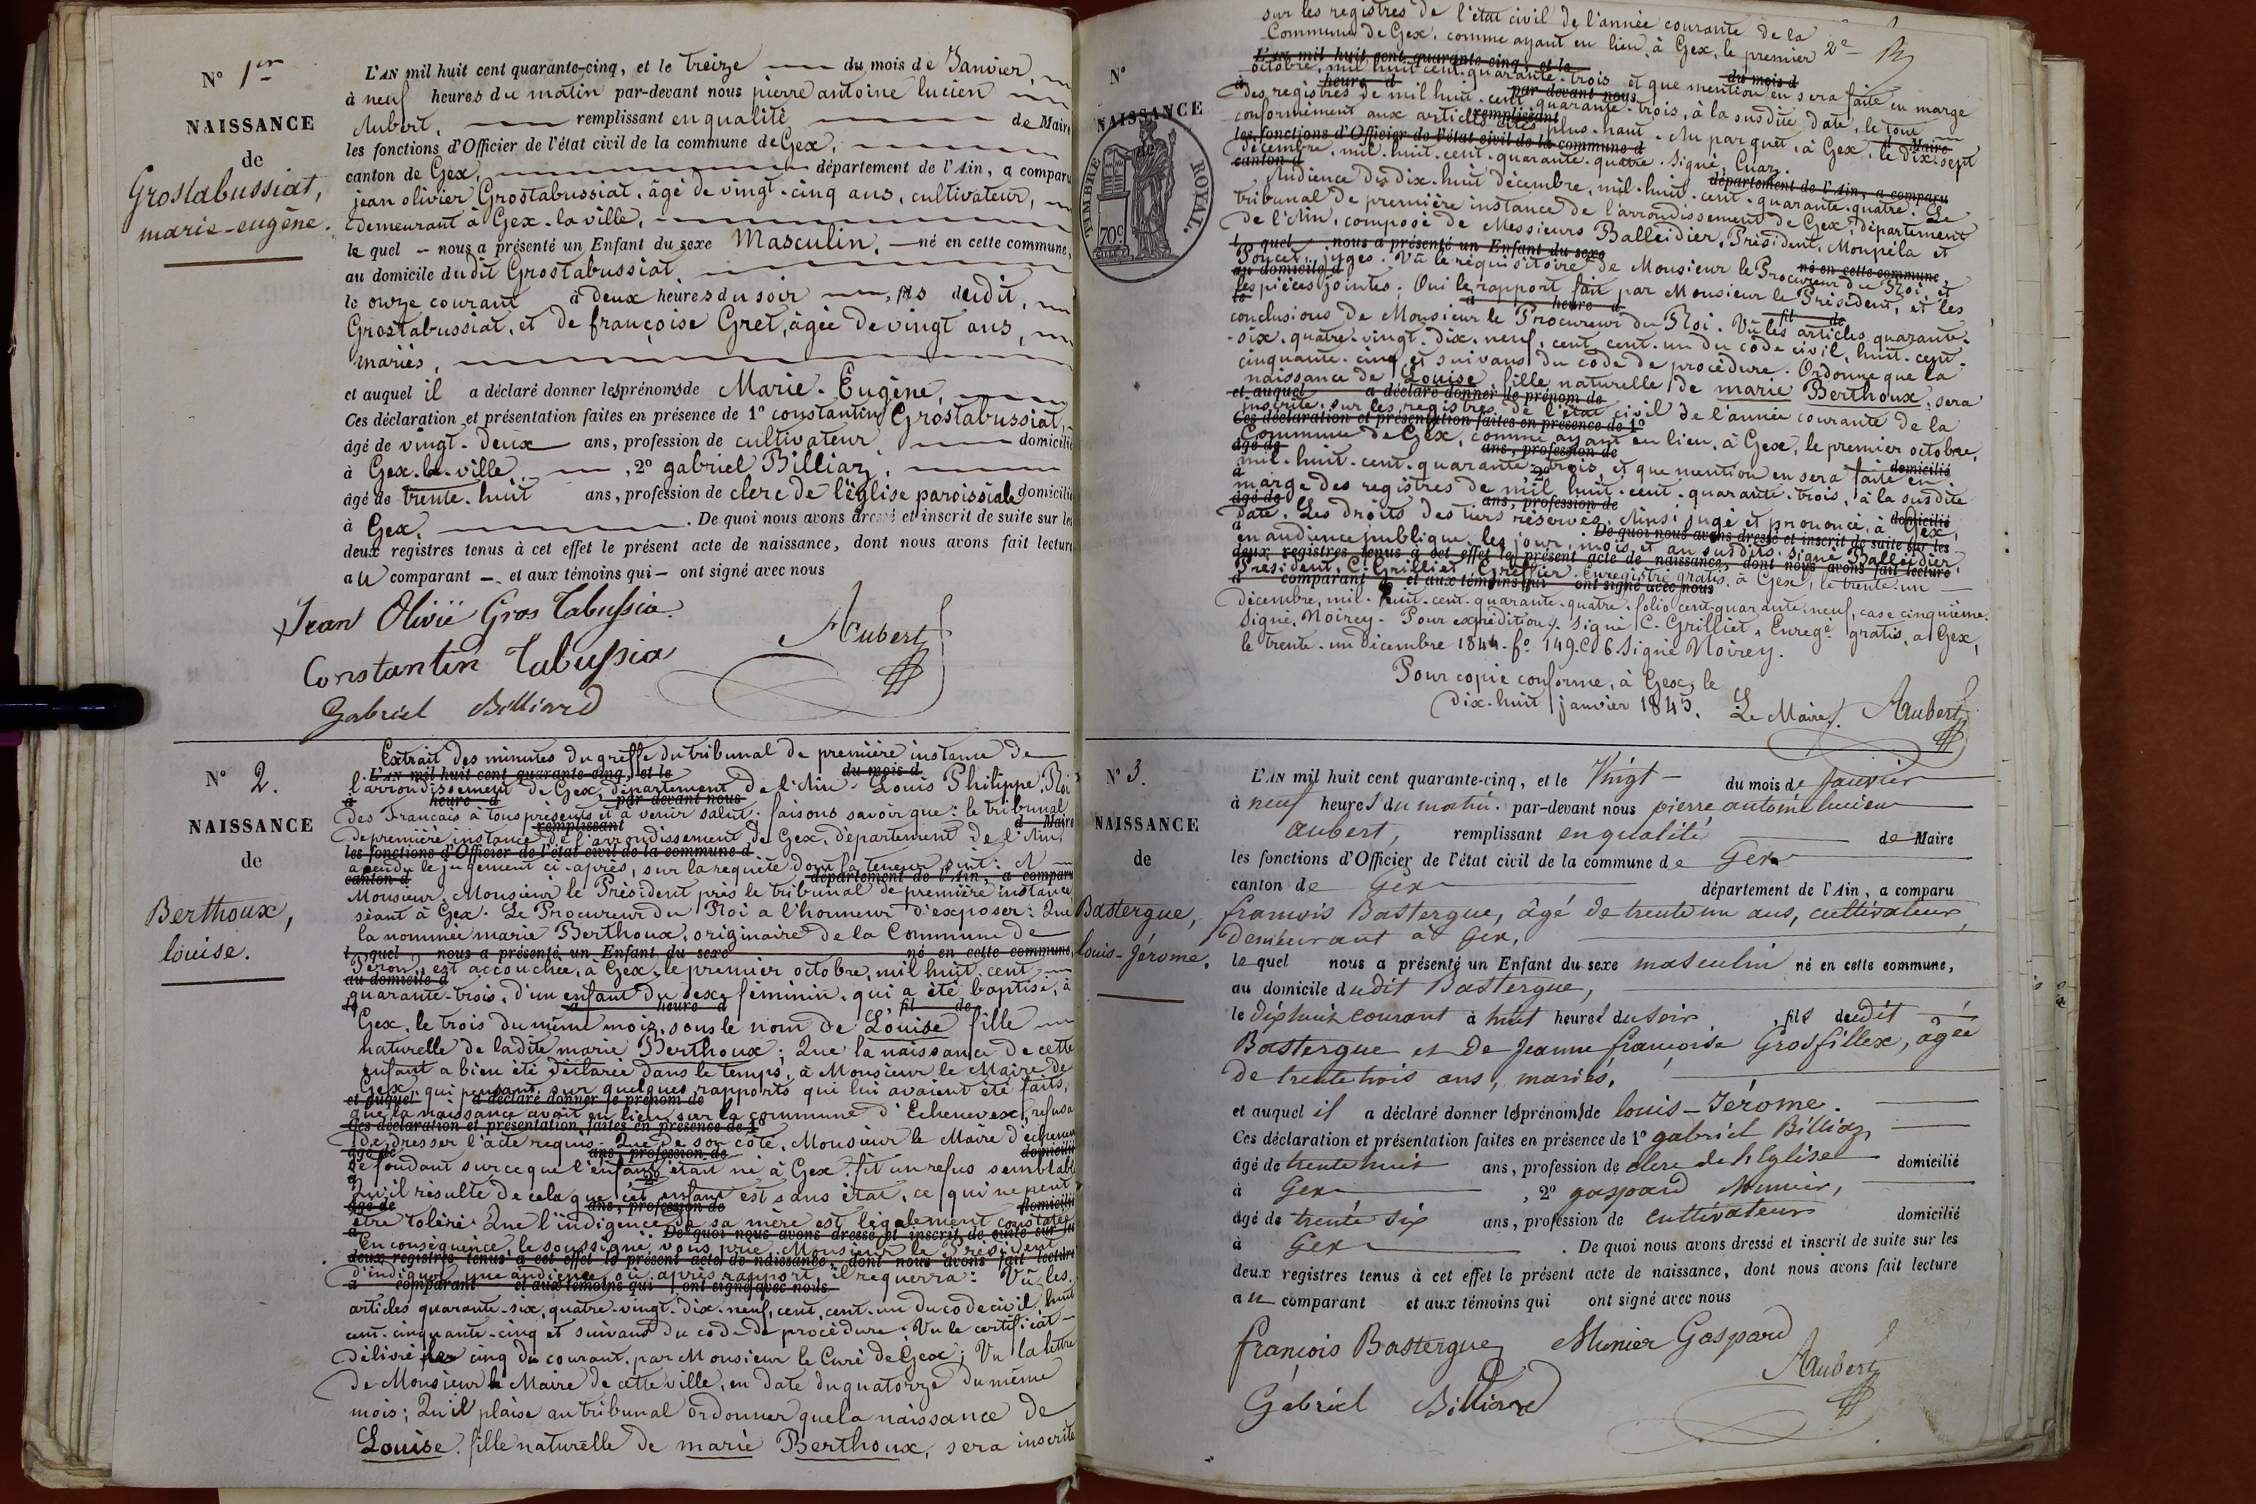 N° 1er
NAISSANCE
de
Grostabussiat,
marie-eugène.
L'AN mil huit cent quarante-cinq, et le treize du mois de Janvier,
à neuf heures du matin par-devant nous pierre antoine lucien
Aubert, remplissant en qualité de Maire
les fonctions d'Officier de l'état civil de la commune de Gex,
canton de Gex, département de l'Ain, a comparu
jean olivier Grostabussiat, âgé de vingt-cinq ans, cultivateur,
demeurant à Gex-la-ville,
le quel nous a présenté un Enfant du sexe Masculin, né en cette commune,
au domicile dudit Grostabussiat
le onze courant à deux heures du soir, fils dudit
Grostabussiat, et de françoise Gret, âgée de vingt ans,
mariés,
et auquel il a déclaré donner les prénoms de Marie-Eugène,
Ces déclaration et présentation faites en présence de 1° constantin Grostabussiat,
âgé de vingt-deux ans, profession de cultivateur domicilié
à Gex-la-ville, 2° gabriel Billiaz,
âgé de trente-huit ans, profession de clerc de l'église paroissiale domicilié
à Gex. De quoi nous avons dressé et inscrit de suite sur les
deux registres tenus à cet effet le présent acte de naissance, dont nous avons fait lecture
au comparant et aux témoins qui ont signé avec nous
Jean Olivié Gros Tabussia
Aubert
Constantin Tabussia
Gabriel Billiard
N° 2.
NAISSANCE
de
Berthoux,
louise.
Extrait des minutes du greffe du tribunal de première instance de
L'AN mil huit cent quarante-cinq, et le du mois d
l'arrondissement de Gex, département de l'Ain. Louis Philippe, Roi
à heure d par-devant nous
des Français à tous présents et à venir salut. faisons savoir que: le tribunal
remplissant d Maire
de première instance de l'arrondissement de Gex, département de l'Ain,
les fonctions d'Officier de l'état civil de la commune d
a rendu le jugement ci-après, sur la requête dont la teneur suit: A
canton d département de l'Ain, a comparu
Monsieur, Monsieur le Président près le tribunal de première instance
séant à Gex. Le Procureur du Roi a l'honneur d'exposer: Que
la nommée marie Berthoux, originaire de la Commune de
l quel nous a présenté un Enfant du sexe né en cette commune,
Péron, est accouchée, à Gex, le premier octobre, mil huit cent
au domicile d
quarante-trois, d'un enfant du sexe féminin, qui a été baptisé, à
le à heure d fil de
Gex, le trois du même mois, sous le nom de Louise fille
naturelle de ladite marie Berthoux; Que la naissance de cette
enfant a bien été déclarée dans le temps, à Monsieur le Maire de
Gex, qui pensant sur quelques rapports qui lui avaient été faits,
et auquel a déclaré donner le prénom de
que la naissance avait eu lieu sur la commune d'Echenevex, refusa
Ces déclaration et présentation faites en présence de 1°
de dresser l'acte requis. Que de son côté, Monsieur le Maire d'échenevex
âgé de ans, profession de domicilié
se fondant sur ce que l'enfant était né à Gex, fit un refus semblable
à 2°
Qu'il résulte de cela que cet enfant est sans état, ce qui ne peut
âgé de ans, profession de domicilié
être toléré. Que l'indigence de sa mère est légalement constatée
à De quoi nous avons dressé et inscrit de suite sur les
En conséquence, le soussigné vous prie, Monsieur le Président,
deux registres tenus à cet effet le présent acte de naissance, dont nous avons fait lecture
d'indiquer une audience, où après rapport, il requerra: Vû les
a comparant et aux témoins qui ont signé avec nous
articles quarante-six, quatre-vingt-dix-neuf, cent, cent-un du code civil, huit
cent-cinquante-cinq et suivans du code de procédure. Vu le certificat
délivré le cinq du courant, par Monsieur le Curé de Gex; Vu la lettre
de Monsieur le Maire de cette ville, en date du quatorze du même
mois; Qu'il plaise au tribunal ordonner que la naissance de
Louise, fille naturelle de marie Berthoux, sera inscrite
sur les registres de l'état civil de l'année courante de la
Commune de Gex, comme ayant eu lieu, à Gex, le premier
2e
N°
NAISSANCE
de
TIMBRE ROYAL.
70c
L'AN mil huit cent quarante-cinq, et le du mois d
octobre, mil huit cent quarante-trois et que mention en sera faite en marge
à heure d par-devant nous
des registres de mil huit-cent quarante-trois, à la susdite date, le tout
remplissant
conformément aux articles cités plus haut. Au parquet, à Gex, le dix-sept
les fonctions d'Officier de l'état civil de la commune d Maire
décembre, mil-huit-cent-quarante-quatre. Signé, Cuaz.
canton d département de l'Ain, a comparu
Audience du dix-huit décembre, mil-huit-cent-quarante-quatre. Le
tribunal de première instance de l'arrondissement de Gex, département
de l'Ain, composé de Messieurs Balleidier, Président, Monpéla et
l quel nous a présenté un Enfant du sexe né en cette commune,
Poncet, juges. Vû le réquisitoire de Monsieur le Procureur du Roi, et
au domicile d
les pièces jointes; Ouï le rapport fait par Monsieur le Président, et les
le à heure d fil de
conclusions de Monsieur le Procureur du Roi. Vû les articles quarante-
-six, quatre-vingt-dix-neuf, cent, cent-un du code civil, huit-cent-
cinquante-cinq et suivans du code de procédure. Ordonne que la
naissance de Louise fille naturelle de marie Berthoux, sera
et auquel a déclaré donner le prénom de
inscrite sur les registres de l'état civil de l'année courante de la
Ces déclaration et présentation faites en présence de 1°
Commune de Gex, comme ayant eu lieu, à Gex, le premier octobre,
âgé de ans, profession de domicilié
mil-huit-cent-quarante-trois, et que mention en sera faite en
à 2°
marge des registres de mil huit-cent-quarante-trois, à la susdite
âgé de ans, profession de domicilié
date. Les droits des tiers réservés. Ainsi jugé et prononcé, à Gex,
à De quoi nous avons dressé et inscrit de suite sur les
en audience publique les jour, mois et an susdits. Signé Balleidier,
deux registres tenus à cet effet le présent acte de naissance, dont nous avons fait lecture
Président, C. Grilliet, Greffier. Enregistré gratis, à Gex, le trente-un
a comparant et aux témoins qui ont signé avec nous
décembre, mil-huit-cent-quarante-quatre, folio cent quarante-neuf, case cinquième.
Signé, Noirey. Pour expédition. Signé C. Grilliet, Enregé gratis, à Gex,
le trente-un décembre 1844. f° 149. C. 6. Signé Noirey.
Pour copie conforme, à Gex, le
dix-huit janvier 1845. Le Maire, Aubert
N° 3.
NAISSANCE
de
Bastergue,
louis-Jérome.
L'AN mil huit cent quarante-cinq, et le Vingt du mois de Janvier
à neuf heures du matin. par-devant nous pierre antoine lucien
aubert, remplissant en qualité de Maire
les fonctions d'Officier de l'état civil de la commune de Gex
canton de Gex département de l'Ain, a comparu
françois Bastergue, âgé de trente un ans, cultivateur,
demeurant à Gex,
le quel nous a présenté un Enfant du sexe masculin né en cette commune,
au domicile dudit Bastergue,
le dixhuit courant à huit heures du soir, fils dudit
Bastergue et de Jeanne françoise Grosfillex, âgée
de trente trois ans, mariés,
et auquel il a déclaré donner les prénoms de louis-Jérome.
Ces déclaration et présentation faites en présence de 1° gabriel Billiaz,
âgé de trente huit ans, profession de clerc de l'Eglise domicilié
à Gex, 2° gaspard Munier,
âgé de trente six ans, profession de cultivateur domicilié
à Gex. De quoi nous avons dressé et inscrit de suite sur les
deux registres tenus à cet effet le présent acte de naissance, dont nous avons fait lecture
au comparant et aux témoins qui ont signé avec nous
françois Bastergue Munier Gaspard
Aubert
Gabriel Billiard